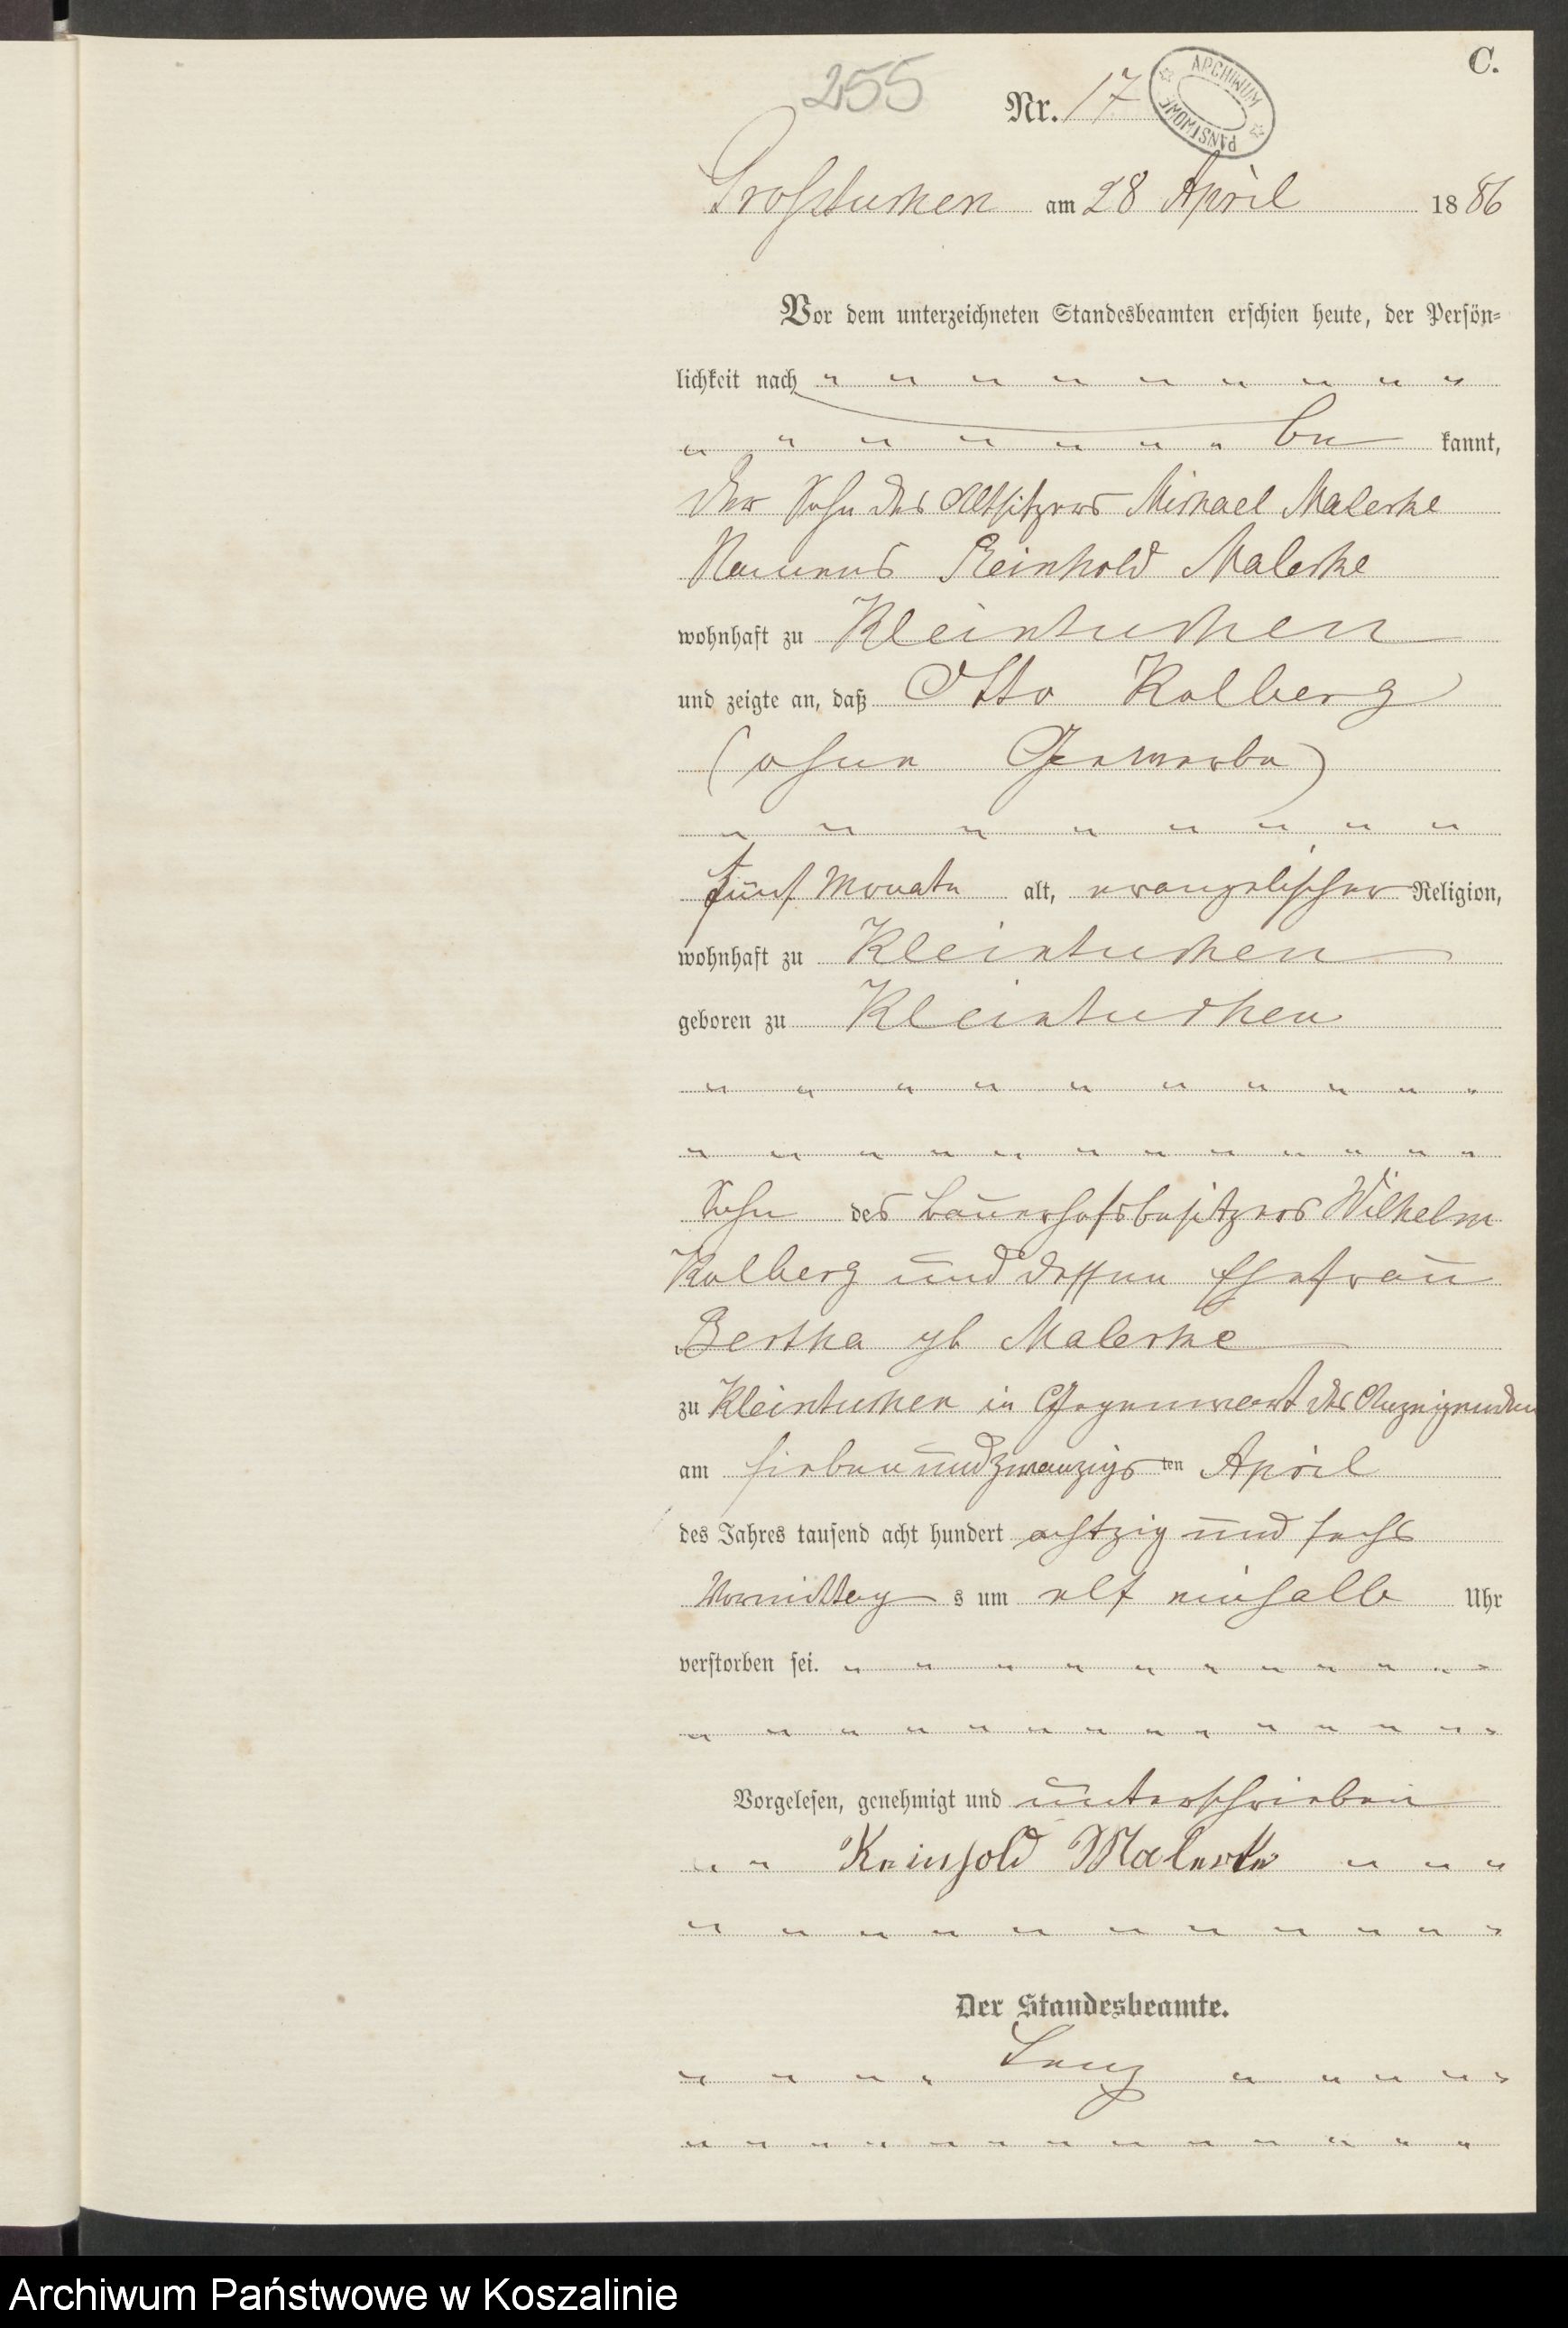 C.
255
Nr. 17
ARCHIWUM PAŃSTWOWE
Großtuchen am 28 April 1886
Vor dem unterzeichneten Standesbeamten erschien heute, der Persön-
lichkeit nach " " " " " " " " "
" " " " " " " be kannt,
der Sohn des Altsitzers Michael Malecke
Namens Reinhold Malecke
wohnhaft zu Kleintuchen
und zeigte an, daß Otto Kolberg
(ohne Gewerbe)
" " " " " " " "
fünf Monate alt, evangelischer Religion,
wohnhaft zu Kleintuchen
geboren zu Kleintuchen
" " " " " " " " " "
" " " " " " " " " " " "
Sohn des Bauerhofsbesitzers Wilhelm
Kolberg und dessen Ehefrau
Bertha gb Malecke
zu Kleintuchen in Gegenwart des Anzeigenden
am siebenundzwanzigs ten April
des Jahres tausend acht hundert achtzig und sechs
Vormittag s um elf einhalb Uhr
verstorben sei. " " " " " " " " " " "
" " " " " " " " " " " " " "
Vorgelesen, genehmigt und unterschrieben
" " Reinhold Malecke " " "
" " " " " " " " " " "
Der Standesbeamte.
" " " " Lenz " " " " "
" " " " " " " " " " " " "
Archiwum Państwowe w Koszalinie